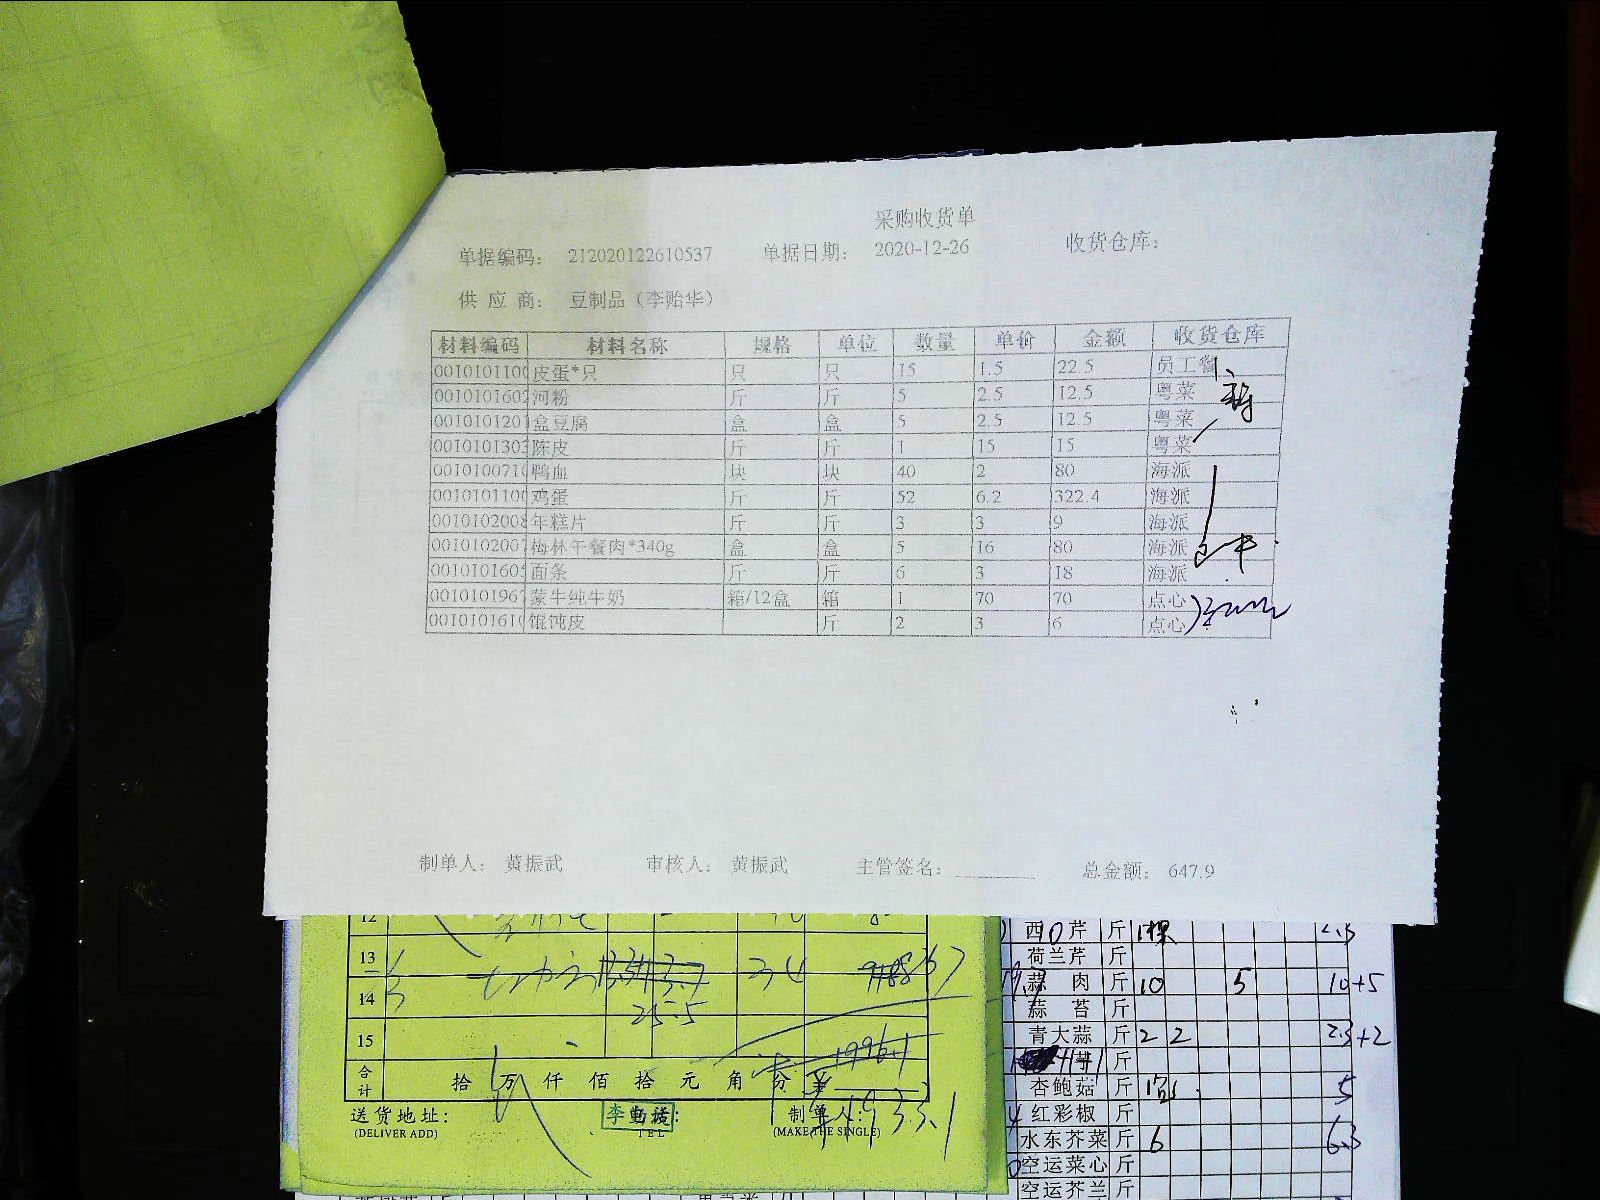 采购收货单
单据编码： 212020122610537 单据日期： 2020-12-26 收货仓库：
供 应 商： 豆制品（李贻华）
材料编码 材料名称 规格 单位 数量 单价 金额 收货仓库
0010101100 皮蛋*只 只 只 15 1.5 22.5 员工餐
0010101602 河粉 斤 斤 5 2.5 12.5 粤菜
0010101201 盒豆腐 盒 盒 5 2.5 12.5 粤菜
0010101303 陈皮 斤 斤 1 15 15 粤菜
0010100710 鸭血 块 块 40 2 80 海派
0010101100 鸡蛋 斤 斤 52 6.2 322.4 海派
0010102008 年糕片 斤 斤 3 3 9 海派
0010102007 梅林午餐肉*340g 盒 盒 5 16 80 海派
0010101605 面条 斤 斤 6 3 18 海派
0010101967 蒙牛纯牛奶 箱/12盒 箱 1 70 70 点心
0010101610 馄饨皮 斤 2 3 6 点心
制单人： 黄振武 审核人： 黄振武 主管签名： 总金额： 647.9
12
13 34
14 25.5
15 1996.1
合计 拾 万 仟 佰 拾 元 角 分 ¥
送货地址： 制单人： 1933.1
(DELIVER ADD) TEL (MAKE THE SINGLE)
西芹 斤
荷兰芹 斤
蒜肉 斤 10 5 10+5
蒜苔 斤
青大蒜 斤 2 2 2.3+2
斤
杏鲍菇 斤 5
红彩椒 斤
水东芥菜 斤 6 6.3
空运菜心 斤
空运芥兰 斤